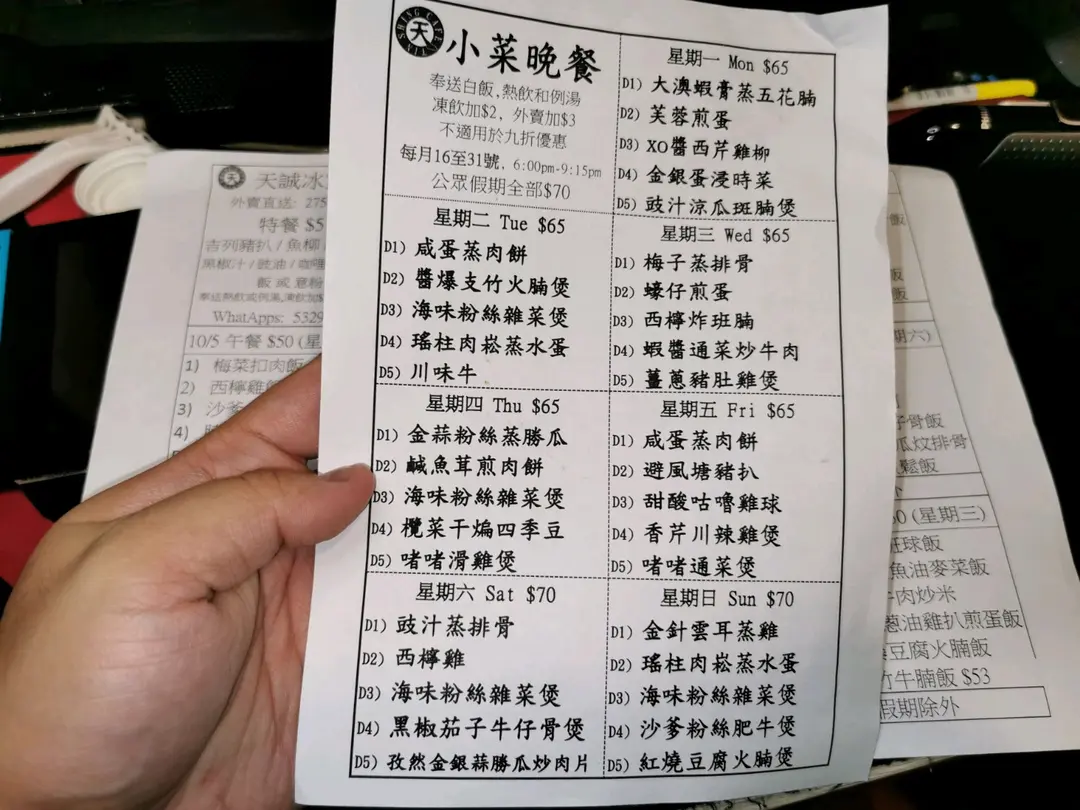 天
小菜晚餐
奉送白飯,熱飲和例湯
凍飲加$2, 外賣加$3
不適用於九折優惠
每月16至31號, 6:00pm-9:15pm
公眾假期全部$70
星期一 Mon $65
D1) 大澳蝦膏蒸五花腩
D2) 芙蓉煎蛋
D3) XO醬西芹雞柳
D4) 金銀蛋浸時菜
D5) 豉汁涼瓜斑腩煲
星期二 Tue $65
D1) 咸蛋蒸肉餅
D2) 醬爆支竹火腩煲
D3) 海味粉絲雜菜煲
D4) 瑤柱肉崧蒸水蛋
D5) 川味牛
星期三 Wed $65
D1) 梅子蒸排骨
D2) 蠔仔煎蛋
D3) 西檸炸班腩
D4) 蝦醬通菜炒牛肉
D5) 薑蔥豬肚雞煲
星期四 Thu $65
D1) 金蒜粉絲蒸勝瓜
D2) 鹹魚茸煎肉餅
D3) 海味粉絲雜菜煲
D4) 欖菜干煸四季豆
D5) 啫啫滑雞煲
星期五 Fri $65
D1) 咸蛋蒸肉餅
D2) 避風塘豬扒
D3) 甜酸咕嚕雞球
D4) 香芹川辣雞煲
D5) 啫啫通菜煲
星期六 Sat $70
D1) 豉汁蒸排骨
D2) 西檸雞
D3) 海味粉絲雜菜煲
D4) 黑椒茄子牛仔骨煲
D5) 孜然金銀蒜勝瓜炒肉片
星期日 Sun $70
D1) 金針雲耳蒸雞
D2) 瑤柱肉崧蒸水蛋
D3) 海味粉絲雜菜煲
D4) 沙爹粉絲肥牛煲
D5) 紅燒豆腐火腩煲
天誠冰
外賣直送: 275
特餐 $5
吉列豬扒 / 魚柳
黑椒汁 / 豉油 / 咖喱
飯 或 意粉
WhatApps: 5329
10/5 午餐 $50 (星
1) 梅菜扣肉飯
2) 西檸雞飯
3) 沙爹
4)
飯
飯
期六)
仔骨飯
瓜炆排骨
鬆飯
0 (星期三)
班球飯
魚油麥菜飯
牛肉炒米
蔥油雞扒煎蛋飯
豆腐火腩飯
竹牛腩飯 $53
假期除外